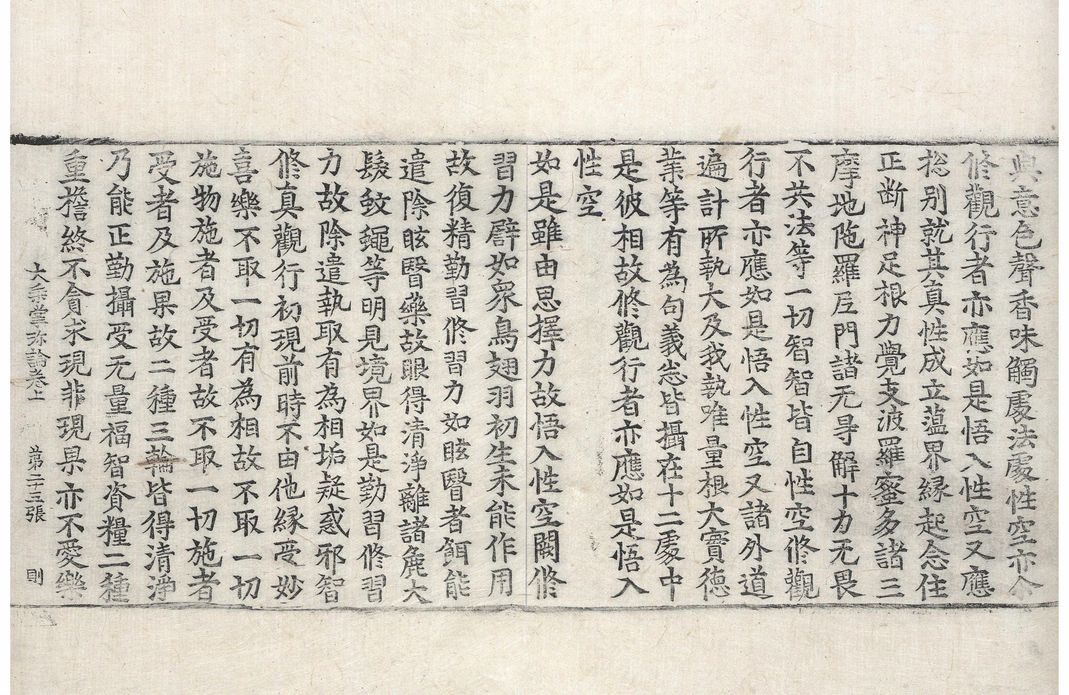 與意色聲香味觸處法處性空亦尒
修觀行者亦應如是悟入性空又應
揔别就其真性成立蕰界緣起念住
正断神足根力覺支波羅蜜多諸三
摩地陁羅尼門諸无㝵解十力无畏
不共法等一切智智皆自性空修觀
行者亦應如是悟入性空又諸外道
遍計所執大及我執唯量根大實德
業等有為句義悉皆攝在十二處中
是彼相故修觀行者亦應如是悟入
性空
如是雖由思擇力故悟入性空闕修
習力辟如衆鳥翅羽初生未能作用
故復精勤習修習力如眩瞖者餌能
遣除眩瞖藥故眼得清淨離諸麁大
髮蚊蠅等明見境界如是勤習修習
力故除遣執取有為相垢疑惑邪智
修真觀行初現前時不由他緣受妙
喜樂不取一切有為相故不取一切
施物施者及受者故不取一切施者
受者及施果故二種三輪皆得清淨
乃能正勤攝受无量福智資糧二種
重擔終不貪求現非現果亦不愛樂
大乘掌珍論卷上 第二十五張 則